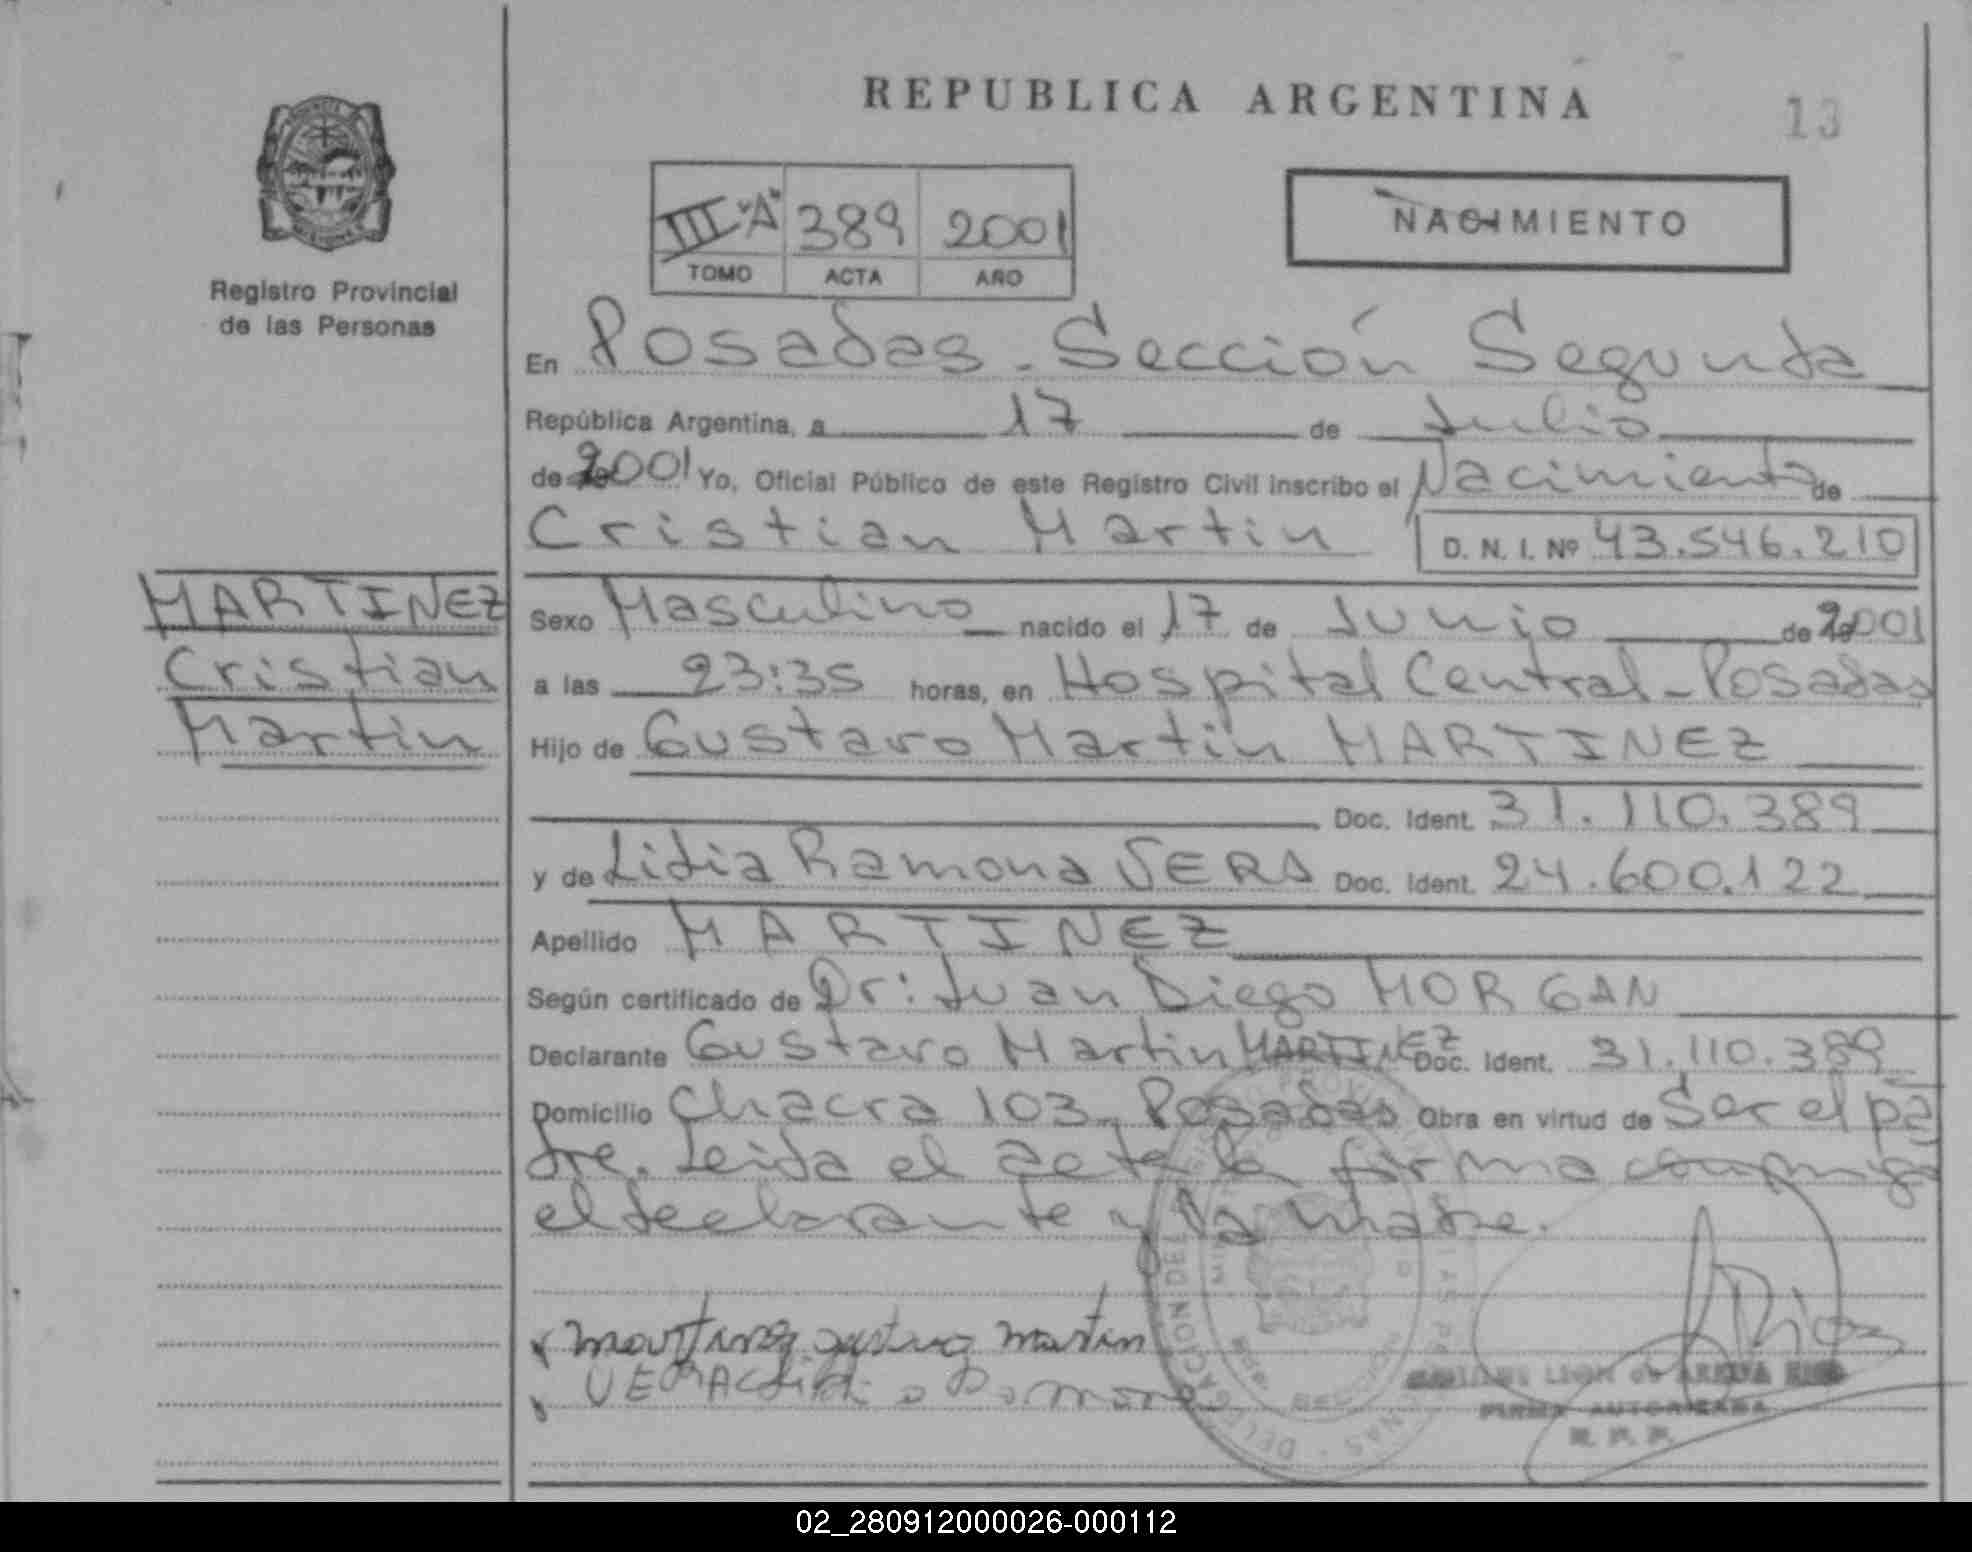 REPUBLICA ARGENTINA
13
III "A" 389 2001
TOMO ACTA AÑO
NACIMIENTO
Registro Provincial
de las Personas
En Posadas - Sección Segunda
República Argentina, a 17 de Julio
de 2001 Yo, Oficial Público de este Registro Civil inscribo el Nacimiento de
Cristian Martin D. N. I. Nº 43.546.210
MARTINEZ
Cristian
Martin
Sexo Masculino nacido el 17 de Junio de 2001
a las 23:35 horas, en Hospital Central - Posadas
Hijo de Gustavo Martin MARTINEZ
Doc. Ident. 31.110.389
y de Lidia Ramona VERA Doc. Ident. 24.600.122
Apellido MARTINEZ
Según certificado de Dr: Juan Diego MORGAN
Declarante Gustavo Martin MARTINEZ Doc. Ident. 31.110.389
Domicilio Chacra 103 - Posadas Obra en virtud de Ser el pa
dre. Leida el acta la firma conmigo
el declarante y la madre.
Martinez gustavo martin
VERA Lidia Ramona
Rios
DELEGACION DEL
FIRMA AUTORIZADA
R. P. P.
02_280912000026-000112